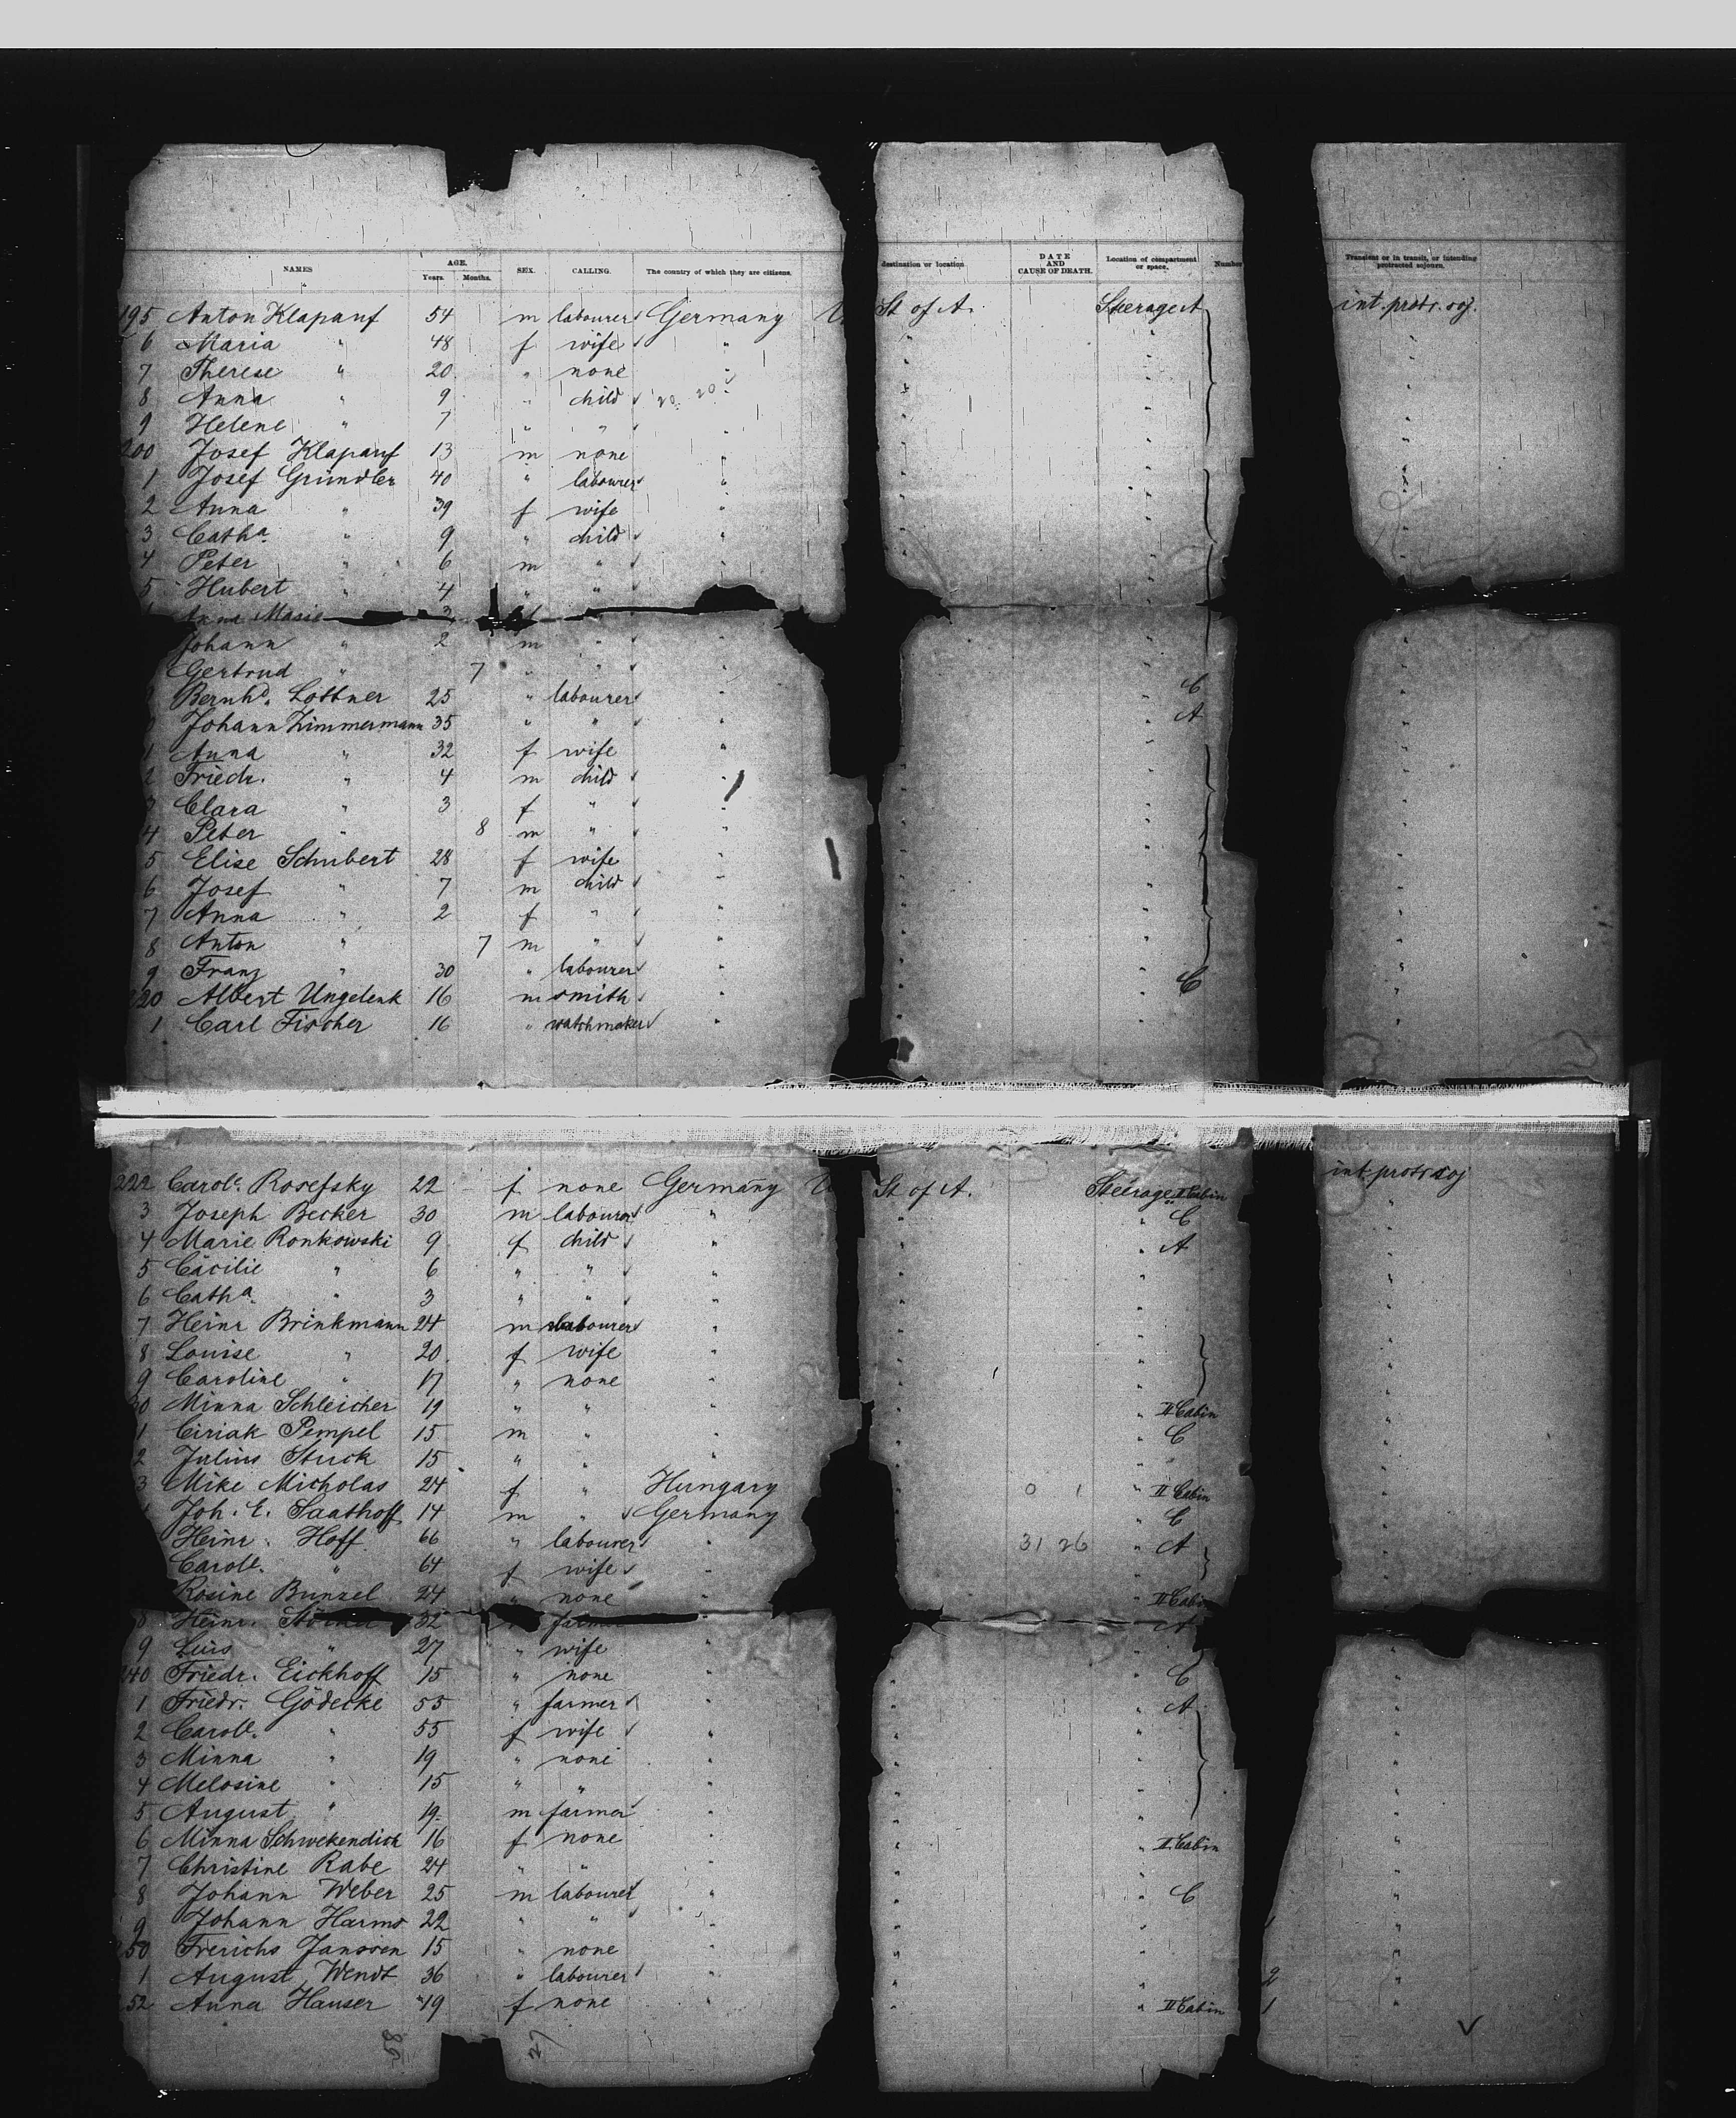 NAMES AGE. Years. Months. SEX. CALLING. The country of which they are citizens. destination or location DATE AND CAUSE OF DEATH. Location of compartment or space. Number Transient or in transit, or intending protracted sojourn.
195 Anton Klapauf 54 m labourer Germany U St of A. Steerage A int. protr. soj.
6 Maria " 48 f wife "
7 Therese " 20 " none "
8 Anna " 9 " child 20 20 "
9 Helene " 7 " " "
200 Josef Klapauf 13 m none "
1 Josef Gründler 40 " labourer "
2 Anna " 39 f wife "
3 Catha " 9 " child "
4 Peter " 6 m " "
5 Hubert " 4 " "
Anna Marie 3
Johann " 2 m " "
Gertrud " 7 " " "
Bernhd. Lottner 25 " labourer " C
Johann Zimmermann 35 " " " A
1 Anna " 32 f wife "
2 Friedr. " 4 m child "
3 Clara " 3 f " "
4 Peter " 8 m " "
5 Elise Schubert 28 f wife "
6 Josef " 7 m child "
7 Anna " 2 f " "
8 Anton " 7 m " "
9 Franz " 30 " labourer "
220 Albert Ungelenk 16 m smith " C
1 Carl Fischer 16 " watchmaker "
222 Carole. Rosefsky 22 f none Germany U St of A. Steerage II Cabin int. protr. soj
3 Joseph Becker 30 m labourer " " C
4 Marie Ronkowski 9 f child " " A
5 Cäcilie " 6 " " "
6 Catha " 3 " " "
7 Heinr Brinkmann 24 m labourer "
8 Louise " 20 f wife "
9 Caroline " 17 " none "
30 Minna Schleicher 19 " " " " II Cabin
1 Ciriak Pempel 15 m " " " C
2 Julius Stuck 15 " " "
3 Mike Micholas 24 f " Hungary 0 1 " II Cabin
Joh. E. Saathoff 14 m " Germany " C
Heinr. Hoff 66 " labourer " 31 26 " A
Carole. " 64 f wife "
Rosine Bunzel 24 " none " " II Cabin
8 Heinr. 32 A
9 Luis " 27 " wife "
240 Friedr. Eickhoff 15 " none " " C
1 Friedr. Gödecke 55 " farmer " A
2 Carole. " 55 f wife "
3 Minna " 19 " none "
4 Melosine " 15 " " "
5 August " 19 m farmer "
6 Minna Schwekendick 16 f none " " II Cabin
7 Christine Rabe 24 " " "
8 Johann Weber 25 m labourer " " C
9 Johann Harms 22 " " " 1
250 Frerichs Janssen 15 " none "
1 August Wendt 36 " labourer " 2
252 Anna Hauser 19 f none " " II Cabin 1
58 27